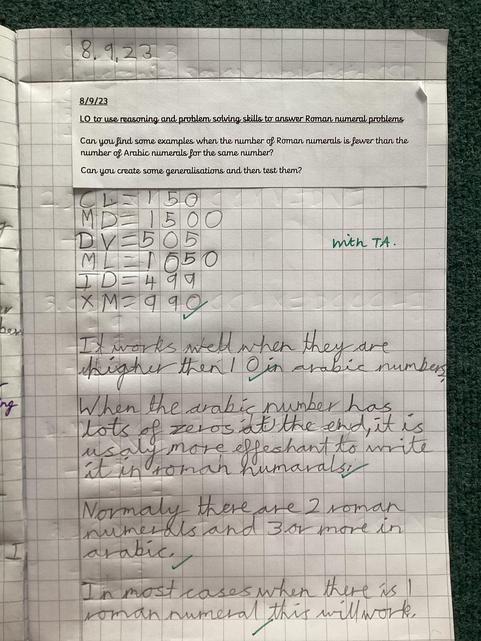 8.9.23
8/9/23
LO to use reasoning and problem solving skills to answer Roman numeral problems
Can you find some examples when the number of Roman numerals is fewer than the
number of Arabic numerals for the same number?
Can you create some generalisations and then test them?
CL=150
MD=1500
DV=505
with TA.
ML=1050
ID=499
XM=990
It works well when they are
higher then 10 in arabic numbers.
When the arabic number has
lots of zeros at the end, it is
usaly more effeshant to write
it in roman numarals.
Normaly there are 2 roman
numerals and 3 or more in
arabic.
In most cases when there is 1
roman numeral, this will work.